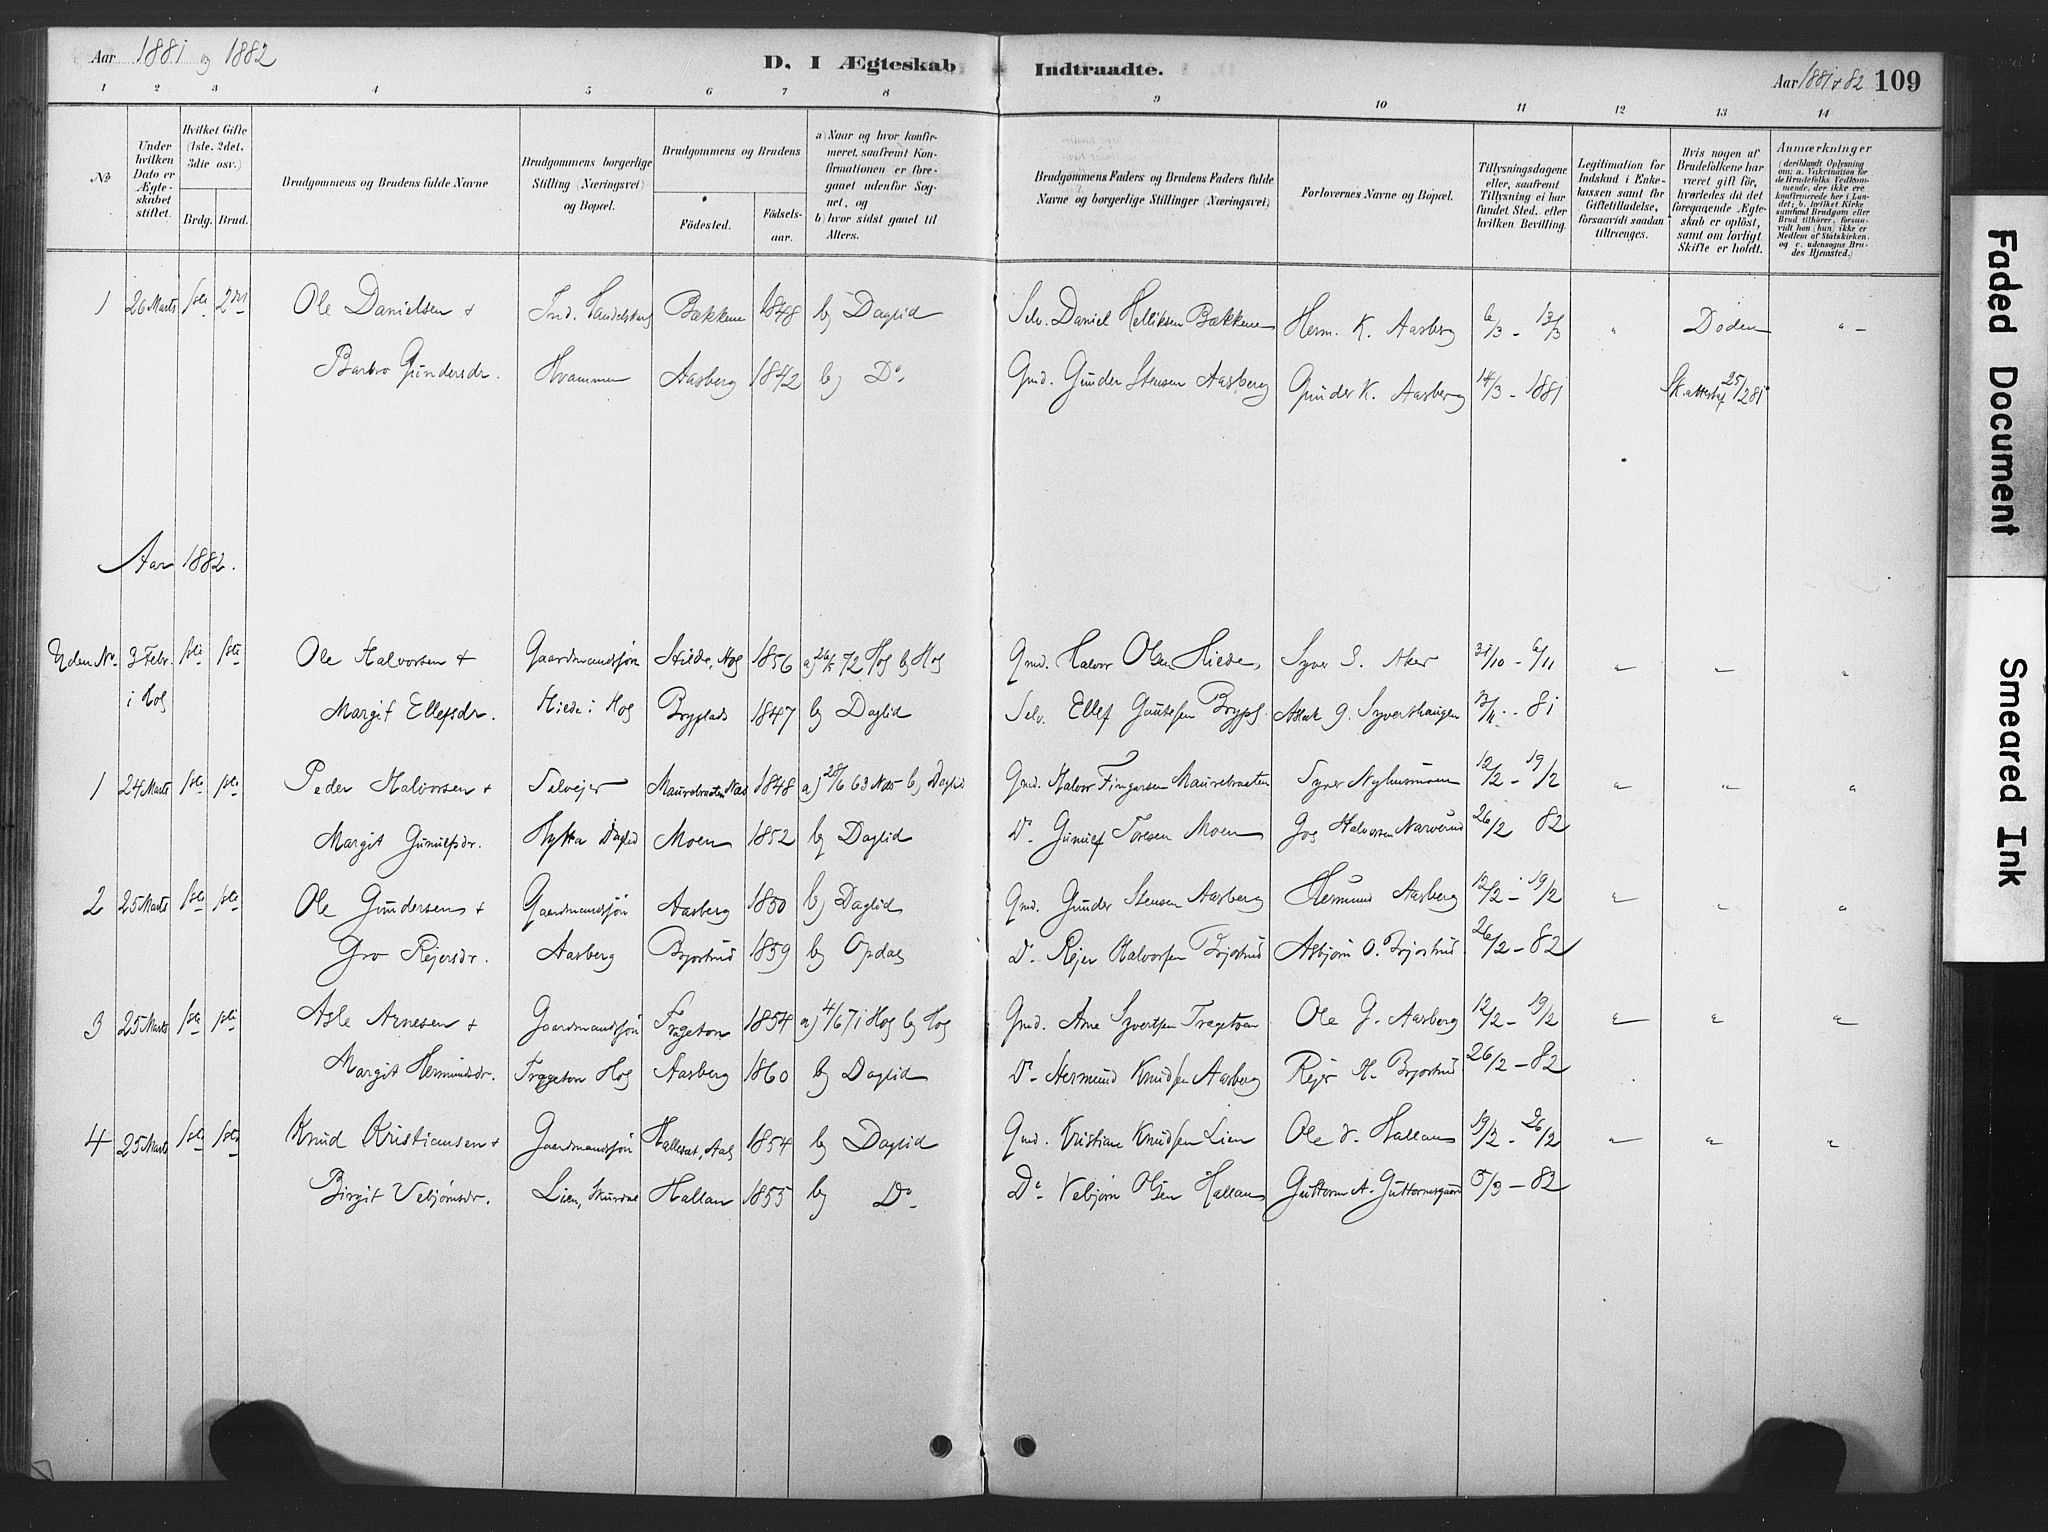 Aar 1881 og 1882
D. I Ægteskab Indtraadte.
Aar 1881 & 82 109
1 2 3 4 5 6 7 8 9 10 11 12 13 14
No
Under hvilken Dato er Ægteskabet stiftet.
Hvilket Gifte (1ste, 2det, 3die osv.)
Brdg. Brud.
Brudgommens og Brudens fulde Navne
Brudgommens borgerlige Stilling (Næringsvei) og Bopæl.
Brudgommens og Brudens
Fødested.
Fødselsaar.
a) Naar og hvor konfirmeret, saafremt Konfirmationen er foregaaet udenfor Sognet, og
b) hvor sidst gaaet til Alters.
Brudgommens Faders og Brudens Faders fulde Navne og borgerlige Stillinger (Næringsvei)
Forlovernes Navne og Bopæl.
Tillysningsdagene eller, saafremt Tillysning ei har fundet Sted, efter hvilken Bevilling.
Legitimation for Indskud i Enkekassen samt for Giftetilladelse, forsaavidt saadan tiltrænges.
Hvis nogen af Brudefolkene har været gift før, hvorledes da det foregaaende Ægteskab er opløst, samt om lovligt Skifte er holdt.
Anmærkninger (deriblandt Oplysning om: a. Vakcination for de Brudefolks Vedkommende, der ikke ere konfirmerede her i Landet; b. hvilket Kirkesamfund Brudgom eller Brud tilhører, forsaavidt han (hun) ikke er Medlem af Statskirken, og c. udensogns Brudes Hjemsted.)
1 26 Marts 1ste 2det Ole Danielsen + Ind. Bækkene 1848 b) Daglid Selv. Daniel Helliksen Bækkene Herm. K. Aasberg 6/3 - 13/3 " Døden " -
Barbro Gundersdr. Hvammen Aasberg 1842 b) Do. Gmd. Gunder Stensen Aasberg Gunder K. Aasberg 14/3 - 1881 Sk.attest af 25/2 81
Aar 1882.
Uden No. 3 Febr. 1ste 1ste Ole Halvorsen + Gaardmandssøn Hol 1856 a) 72 Hol b) Hol Gmd. Halvor Olsen Hiede, Syver S. Aker 31/10 - 6/11 " " "
i Hol Margit Ellefsdr. Hiede i Hol 1847 b) Daglid Selv. Ellef Gautesen Aslak G. Syvershaugen 81
1 24 Marts 1ste 1ste Peder Halvorsen + Selveier Maurebraaten Næs 1848 a) 28/6 63 Næs b) Daglid Gmd. Halvor Fingarsen Maurebraaten Syver Nyhusmoen 12/2 - 19/2 " " "
Margit Gunulfsdr. Hytta Daglid Moen 1852 b) Daglid Do. Gunulf Toresen Moen Halvorsen Narverud 26/2 82
2 25 Marts 1ste 1ste Ole Gundersen + Gaardmandssøn Aasberg 1850 b) Daglid Gmd. Gunder Stensen Aasberg Hermund Aasberg 12/2 - 19/2 " " "
Gro Rejersdr. Aasberg Brjøstrud 1859 b) Opdal Do. Rejer Halvorsen Brjøstrud Asbjørn O. Brjøstrud. 26/2 - 82
3 25 Marts 1ste 1ste Asle Arnesen + Gaardmandssøn Trageton 1854 a) 4/6 71 Hol b) Hol Gmd. Arne Syvertsen Trageton Ole G. Aasberg 12/2 - 19/2 " " "
Margit Hermundsdr. Trageton Hol Aasberg 1860 b) Daglid Do. Hermund Knudsen Aasberg Rejer H. Brjøstrud 26/2 - 82
4 25 Marts 1ste 1ste Knud Kristiansen + Gaardmandssøn Aal 1854 b) Daglid Gmd. Kristian Knudsen Lien Ole V. Hallan 19/2 - 26/2 " " "
Birgit Vebjørnsdr. Lien, Skurdal Hallan 1855 b) Do. Do. Vebjørn Olsen Hallan Guttorm A. Guttormsgaard 5/3 - 82
Faded Document
Smeared Ink